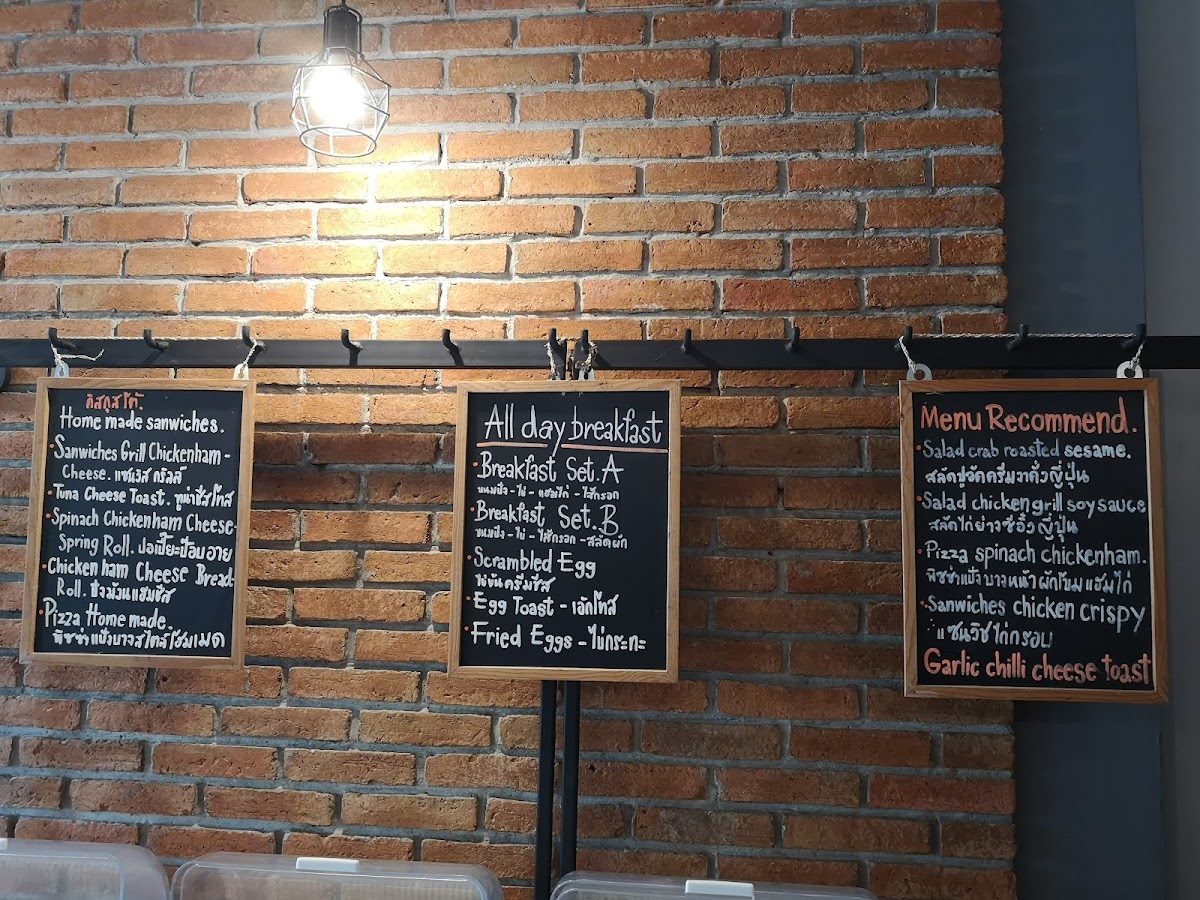 Home made sanwiches.
Sanwiches Grill Chickenham -
Cheese. แซนวิส กริลล์
Tuna Cheese Toast. ทูน่าชีสโทส
Spinach Chickenham Cheese-
Spring Roll. ปอเปี๊ยะป๊อบอาย
Chicken ham Cheese Bread-
Roll. ปังม้วนแฮมชีส
Pizza Home made.
พิซซ่าแป้งบางสไตล์โฮมเมด
All day breakfast
Breakfast Set.A
ขนมปัง - ไข่ - แฮมไก่ - ไส้กรอก
Breakfast Set.B
ขนมปัง - ไข่ - ไส้กรอก - สลัดผัก
Scrambled Egg
ไข่ข้นครีมชีส
Egg Toast - เอ้กโทส
Fried Eggs - ไข่กระทะ
Menu Recommend.
Salad crab roasted sesame.
สลัดปูอัดครีมงาคั่วญี่ปุ่น
Salad chicken grill soy sauce
สลัดไก่ย่างซีอิ๊วญี่ปุ่น
Pizza spinach chickenham.
พิซซ่าแป้งบางหน้าผักโขมแฮมไก่
Sanwiches chicken crispy
แซนวิชไก่กรอบ
Garlic chilli cheese toast